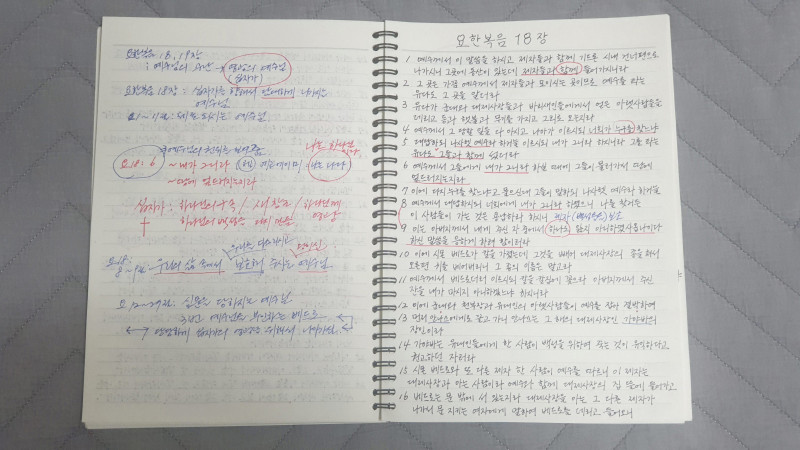 요한복음 18, 19장
: 예수님의 수난 → 영광의 예수님
(십자가)
요한복음 18장 : 십자가를 향해서 나아가는
예수님
나는 하나님
이다
요18:6 ~내가 그니라
~땅에 엎드러지는지라
십자가 : 하나님의 구속 / 새 창조 / 하나님께 영광
하나님의 백성
요18:
8~9절 우리의 삶 속에서 보호해 주시는 예수님
요 12~27절 심문을 당하시는 예수님
3번 예수님을 부인하는 베드로
요한복음 18장
1 예수께서 이 말씀을 하시고 제자들과 함께 기드론 시내 건너편으로
나가시니 그곳에 동산이 있는데 제자들과 함께 들어가시니라
2 그 곳은 가끔 예수께서 제자들과 모이시는 곳이므로 예수를 파는
유다도 그 곳을 알더라
3 유다가 군대와 대제사장들과 바리새인들에게서 얻은 아랫사람들을
데리고 등과 횃불과 무기를 가지고 그리로 오는지라
4 예수께서 그 당할 일을 다 아시고 나아가 이르시되 너희가 누구를 찾느냐
5 대답하되 나사렛 예수라 하거늘 이르시되 내가 그니라 하시니라 그를 파는
유다도 그들과 함께 섰더라
6 예수께서 그들에게 내가 그니라 하실 때에 그들이 물러가서 땅에
엎드러지는지라
7 이에 다시 누구를 찾느냐고 물으신대 그들이 말하되 나사렛 예수라 하거늘
8 예수께서 대답하시되 너희에게 내가 그니라 하였으니 나를 찾거든
이 사람들이 가는 것은 용납하라 하시니
9 이는 아버지께서 내게 주신 자 중에서 하나도 잃지 아니하였사옵나이다
하신 말씀을 응하게 하려 함이러라
10 이에 시몬 베드로가 칼을 가졌는데 그것을 빼어 대제사장의 종을 쳐서
오른편 귀를 베어버리니 그 종의 이름은 말고라
11 예수께서 베드로더러 이르시되 칼을 칼집에 꽂으라 아버지께서 주신
잔을 내가 마시지 아니하겠느냐 하시니라
12 이에 군대와 천부장과 유대인의 아랫사람들이 예수를 잡아 결박하여
13 먼저 안나스에게로 끌고 가니 안나스는 그 해의 대제사장인 가야바의
장인이라
14 가야바는 유대인들에게 한 사람이 백성을 위하여 죽는 것이 유익하다고
권고하던 자러라
15 시몬 베드로와 또 다른 제자 한 사람이 예수를 따르니 이 제자는
대제사장과 아는 사람이라 예수와 함께 대제사장의 집 뜰에 들어가고
16 베드로는 문 밖에 서 있는지라 대제사장을 아는 그 다른 제자가
나가서 문 지키는 여자에게 말하여 베드로를 데리고 들어오니